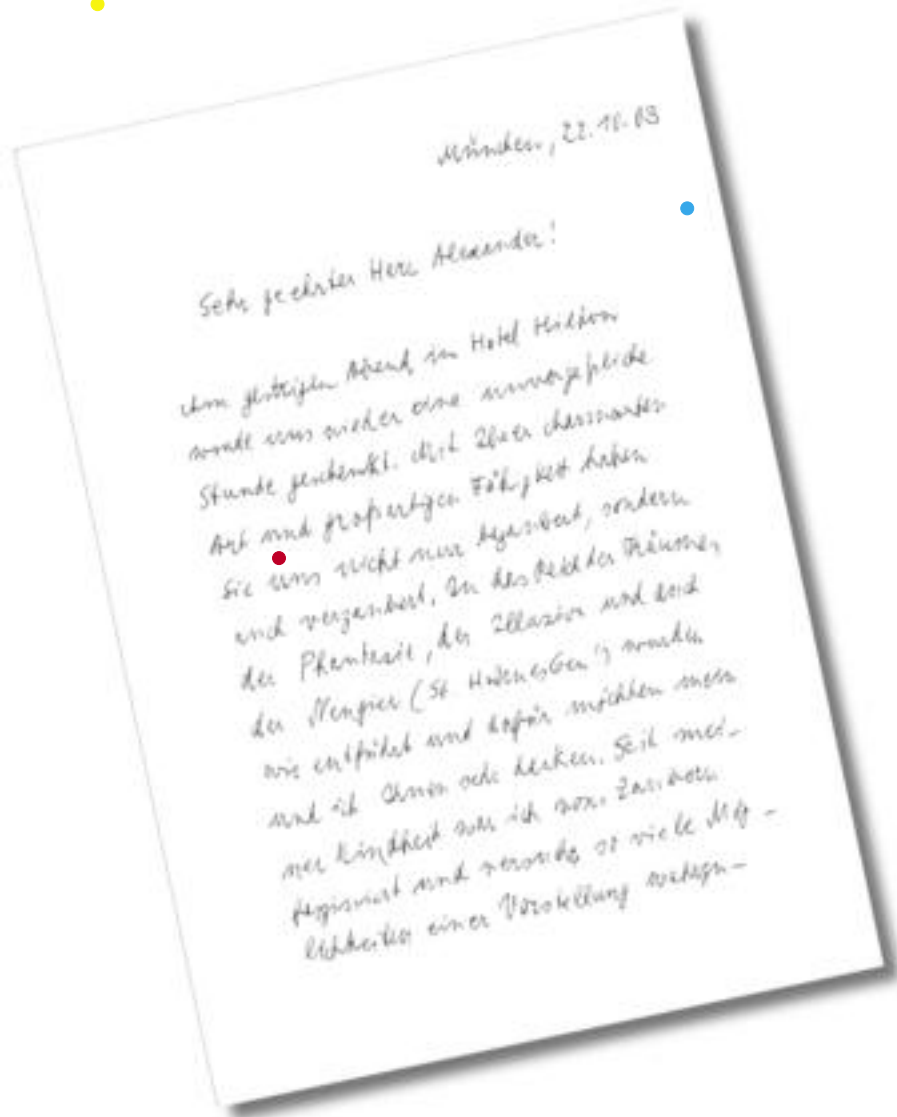 München, 22.10.03
Sehr geehrter Herr Alexander!
Am gestrigen Abend im Hotel Hilton
wurde uns wieder eine unvergeßliche
Stunde geschenkt. Mit Ihrer charmanten
Art und großartigen Fähigkeit haben
Sie uns nicht nur begeistert, sondern
auch verzaubert. In das Reich der Träume,
der Phantasie, der Illusion und auch
der Neugier (St
wir entführt und dafür möchten mein
und ich Ihnen sehr danken. Seit mei-
ner Kindheit war ich von
fasziniert und versuchte so viele Mög-
lichkeiten einer Vorstellung